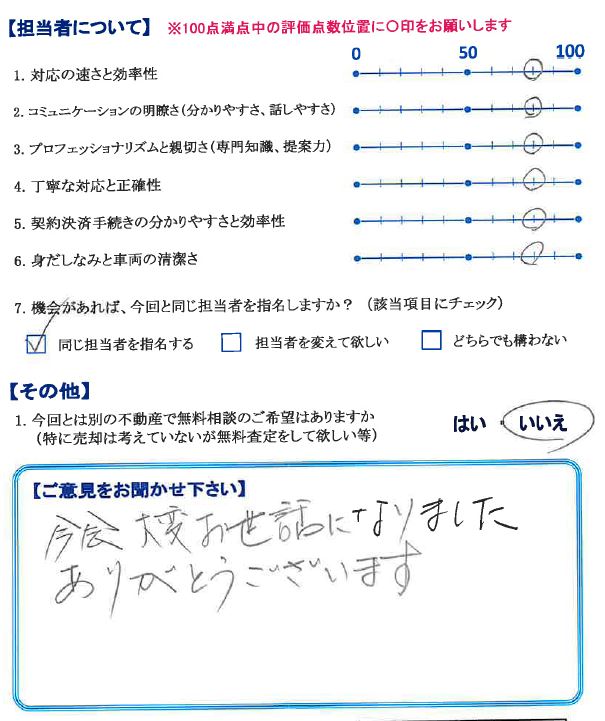 【担当者について】 ※100点満点中の評価点数位置に〇印をお願いします
0 50 100
1. 対応の速さと効率性
2. コミュニケーションの明瞭さ(分かりやすさ、話しやすさ)
3. プロフェッショナリズムと親切さ(専門知識、提案力)
4. 丁寧な対応と正確性
5. 契約決済手続きの分かりやすさと効率性
6. 身だしなみと車両の清潔さ
7. 機会があれば、今回と同じ担当者を指名しますか? (該当項目にチェック)
同じ担当者を指名する 担当者を変えて欲しい どちらでも構わない
【その他】
1. 今回とは別の不動産で無料相談のご希望はありますか
(特に売却は考えていないが無料査定をして欲しい等)
はい ・ いいえ
【ご意見をお聞かせ下さい】
大変お世話になりました
ありがとうございます